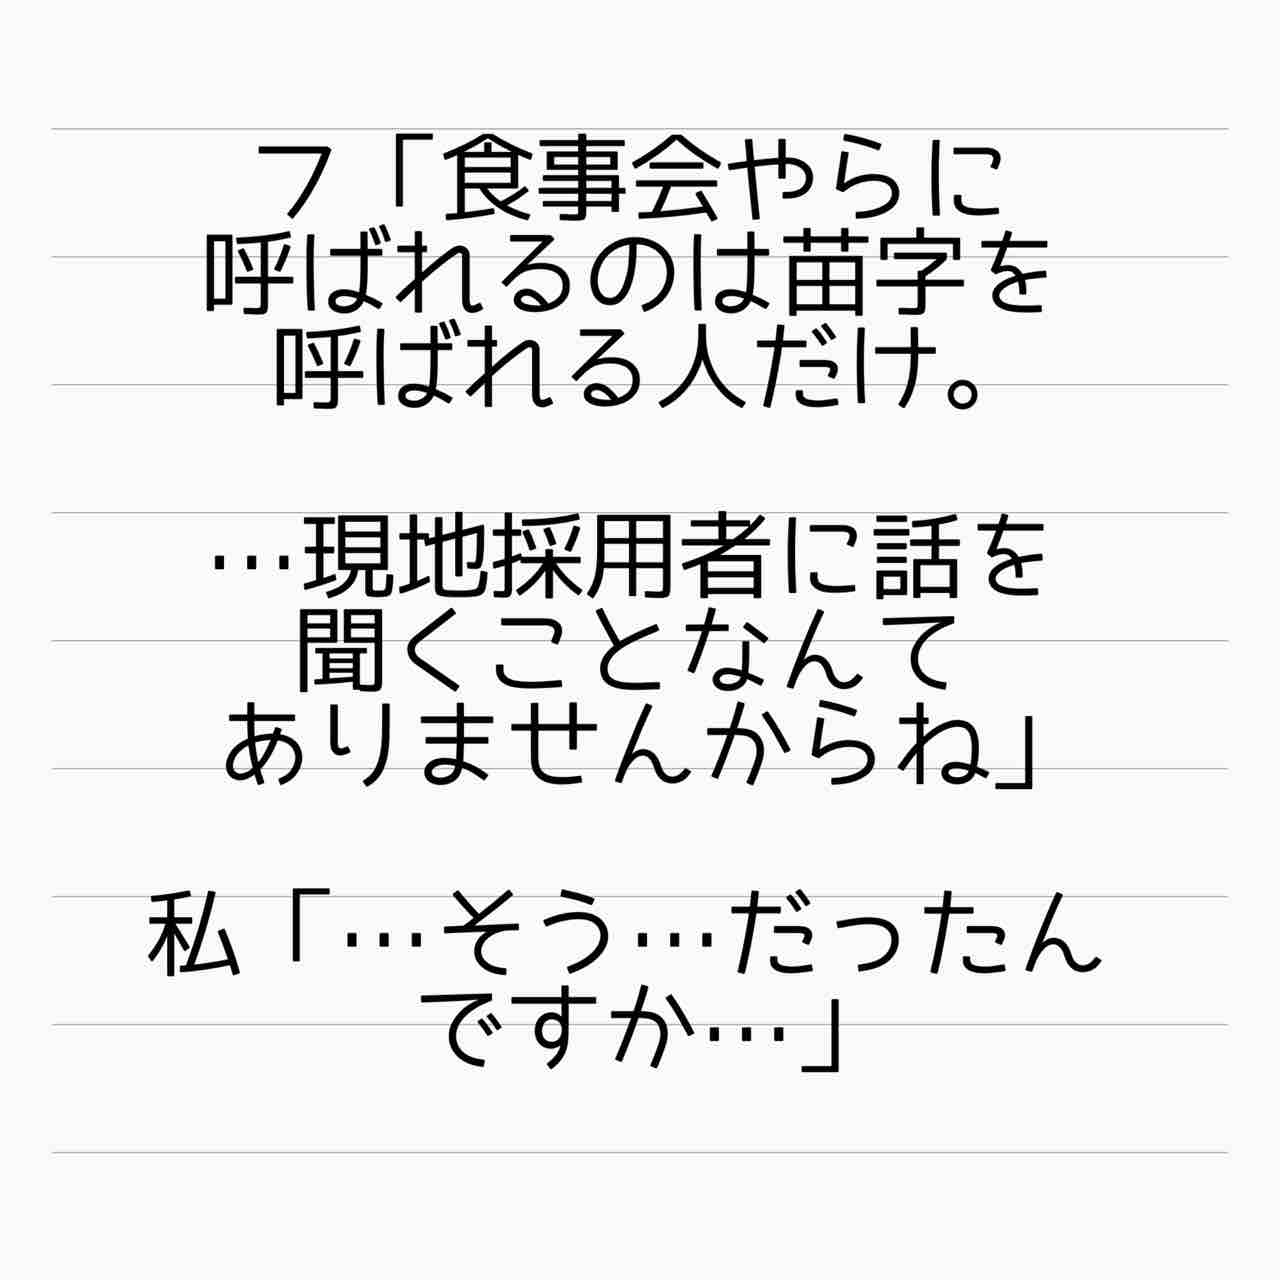 フ「食事会やらに
呼ばれるのは苗字を
呼ばれる人だけ。
…現地採用者に話を
聞くことなんて
ありませんからね」
私「…そう…だったん
ですか…」